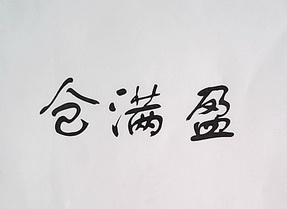 仓满盈